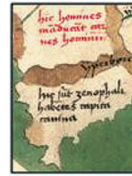 hic homines
māducāt car
nes hominū.
hic sūt zenophali
habētes capita
canina